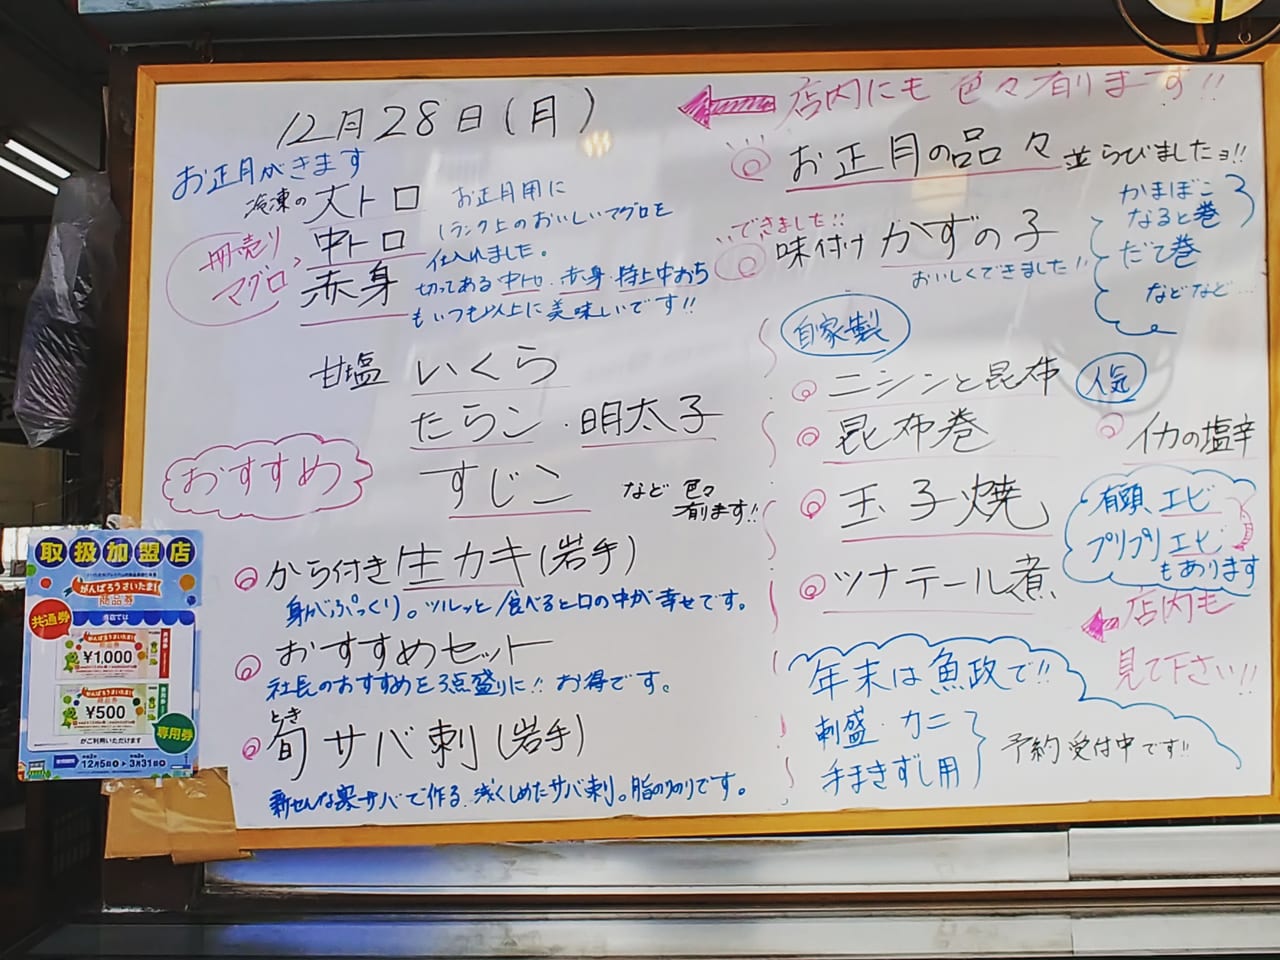 12月28日(月)
お正月がきます
冷凍の 大トロ
冊売り
マグロ
中トロ
赤身
お正月用に
1ランク上のおいしいマグロを
仕入れました。
切ってある中トロ・赤身・特上中おち
もいつも以上に美味しいです!!
甘塩 いくら
たらこ・明太子
おすすめ
すじこ
など 色々
有ります!!
から付き生カキ(岩手)
身がぷっくり。ツルッと食べると口の中が幸せです。
おすすめセット
社長のおすすめを3点盛りに!! お得です。
とき
旬サバ刺(岩手)
新せんな寒サバで作る、浅くしめたサバ刺。脂のりのりです。
店内にも色々有ります!!
お正月の品々並らびましたョ!!
かまぼこ
なると巻
だて巻
などなど…
できました!!
味付けかずの子
おいしくできました!!
自家製
ニシンと昆布
昆布巻
玉子焼
ツナテール煮
人気
イカの塩辛
有頭エビ
プリプリエビ
もあります
店内も
見て下さい!!
年末は魚政で!!
刺盛・カニ
手まきずし用
予約受付中です!!
取扱加盟店
がんばろうさいたま!
商品券
共通券
当店では
¥1,000
¥500
専用券
がご利用いただけます
12月5日 3月31日